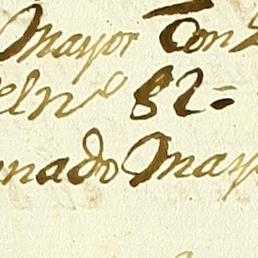 Mayor Con
el nº 82=
nado May